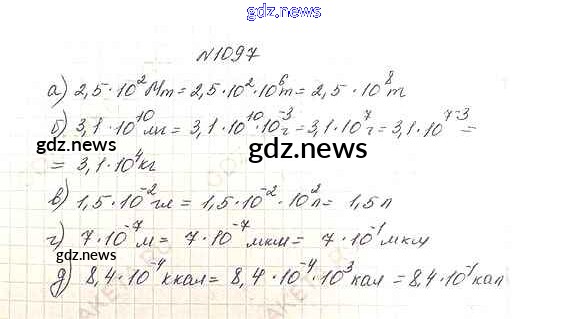 gdz.news
№1097
а) 2,5·10² Мт = 2,5·10²·10⁶т = 2,5·10⁸т
б) 3,1·10¹⁰мг = 3,1·10¹⁰·10⁻³г = 3,1·10⁷г = 3,1·10⁷⁻³ =
gdz.news
gdz.news
= 3,1·10⁴кг
в) 1,5·10⁻²гл = 1,5·10⁻²·10²л = 1,5л
г) 7·10⁻⁷м = 7·10⁻⁷мкм = 7·10⁻¹мкм
gdz.news
д) 8,4·10⁻⁴ккал = 8,4·10⁻⁴·10³кал = 8,4·10⁻¹кал